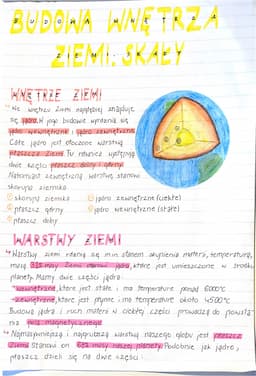 BUDOWA WNĘTRZA
ZIEMI. SKAŁY
WNĘTRZE ZIEMI
We wnętrzu Ziemi najgłębiej znajduje
się jądro. W jego budowie wyróżnia się
jądro wewnętrzne i jądro zewnętrzne.
Całe jądro jest otoczone warstwą
płaszcza ziemi. Tu również występują
dwie części płaszcz dolny i górny.
Natomiast zewnętrzną warstwę stanowi
skorupa ziemska.
① skorupa ziemska
② płaszcz górny
③ płaszcz dolny
④ jądro zewnętrzne (ciekłe)
⑤ jądro wewnętrzne (stałe)
WARSTWY ZIEMI
↳ Warstwy ziemi różnią się m.in. stanem skupienia materii, temperaturą,
masą. masy Ziemi stanowi jądro, które jest umieszczone w środku
planety. Mamy dwie części jądra:
-wewnętrzne, które jest stałe i ma temperaturę ponad 6000°C
-zewnętrzne, które jest płynne i ma temperaturę około 4500°C
Budowa jądra i ruch materii w ciekłej części prowadzą do powsta-
nia pola magnetycznego
↳ Najmasywniejszą i najgrubszą warstwą naszego globu jest płaszcz
Ziemi. Stanowi on masy naszej planety. Podobnie jak jądro,
płaszcz dzieli się na dwie części: